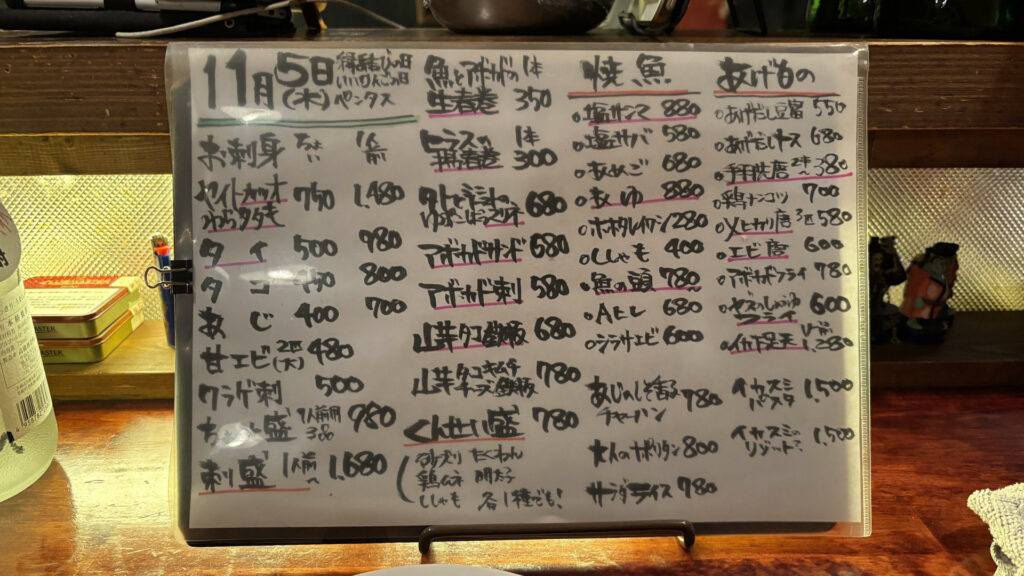 11月5日
(木)
いいりんごの日
ペンタス
お刺身 1人前
750 1,480
わらタタキ
タイ 500 980
タコ 800
あじ 400 700
甘エビ 2匹(大) 480
クラゲ刺 500
ちょっと盛 1人前用 3品 980
刺盛 1人前〜 1,680
魚とアボカドの 1本
生春巻 350
1本
300
680
アボカドサンド 680
アボカド刺 580
山芋タコ鉄板 680
山芋タコキムチ
チーズ鉄板 780
くんせい盛 780
たくわん
鶏ムネ 明太子
ししゃも 各1種でも!
焼魚
塩サンマ 880
塩サバ 580
680
880
280
ししゃも 400
魚の頭 780
Aヒレ 680
シラサエビ 600
あじのしそ香る
チャーハン 780
大人のナポリタン 800
サラダライス 780
あげもの
あげだし豆腐 550
あげだしナス 680
手羽先唐 2本〜 380
鶏ナンコツ 700
メヒカリ唐 3匹 580
エビ唐 600
アボカドフライ 780
フライ 600
イカ下足天 1,280
イカスミ
パスタ 1,500
イカスミの
リゾット 1,500